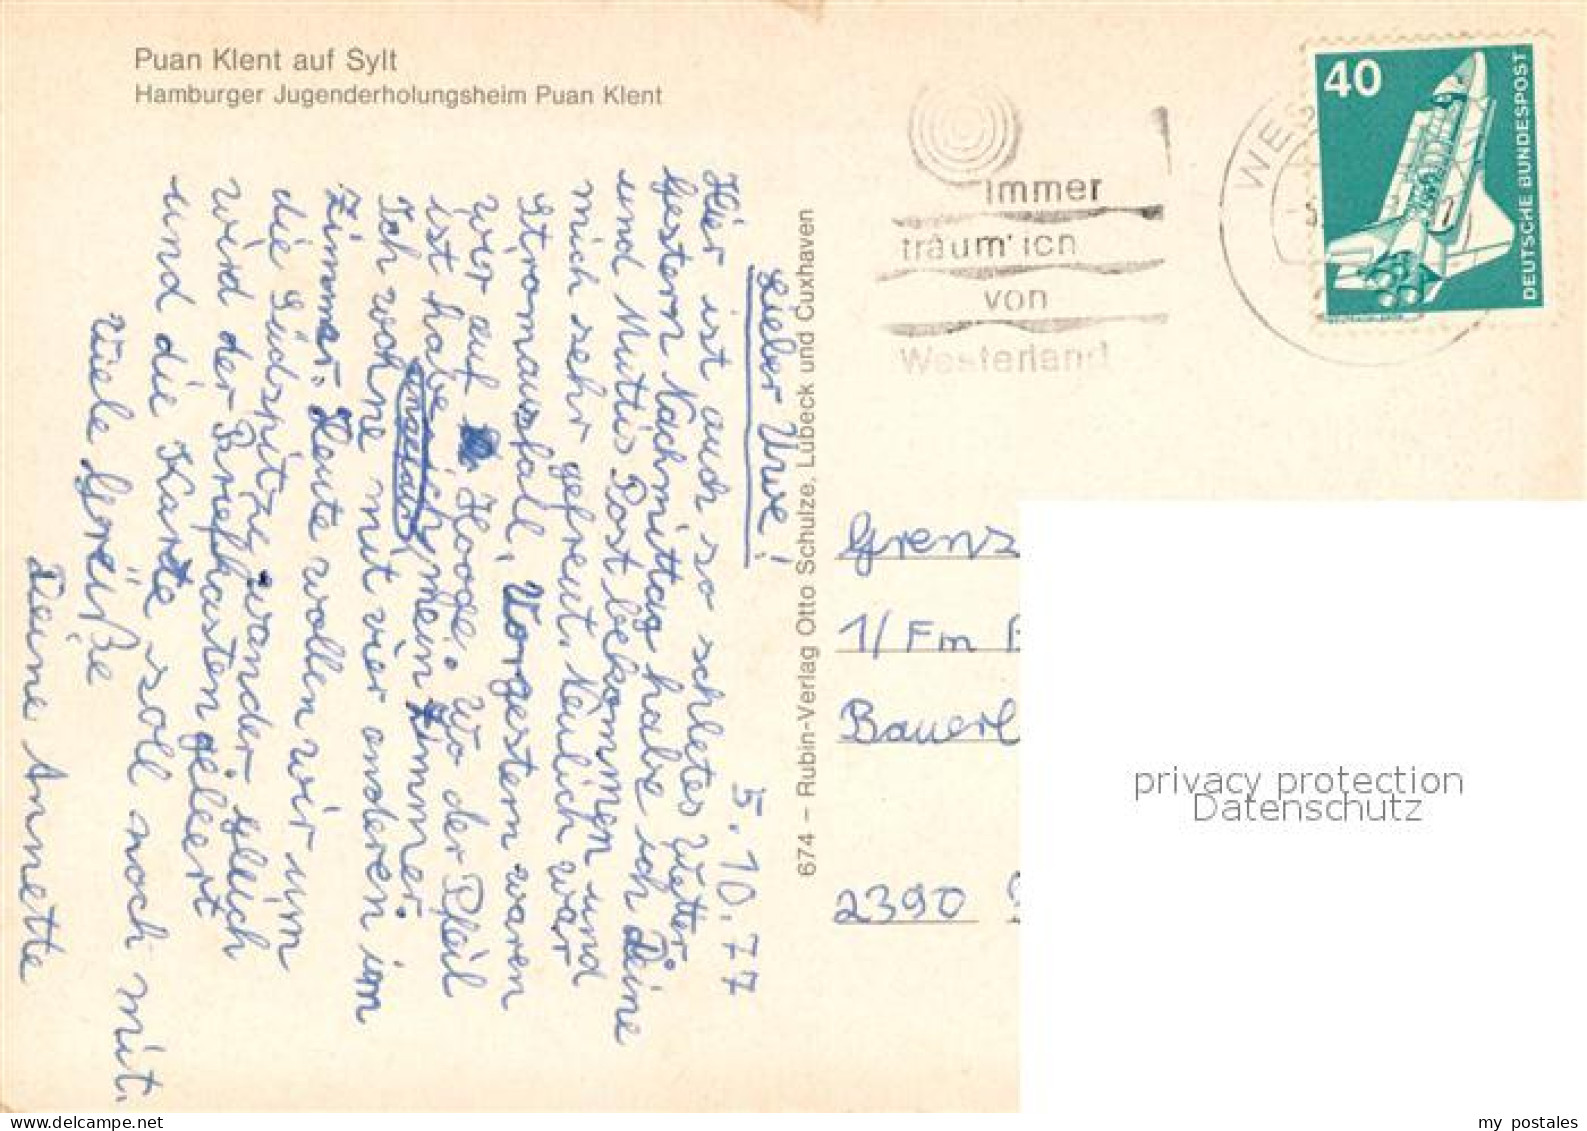 Puan Klent auf Sylt
Hamburger Jugenderholungsheim Puan Klent
5.10.77
Lieber Uwe!
Hier ist auch so schletes Wetter.
Gestern Nachmittag habe ich Deine
und Muttis Post bekommen und
mich sehr gefreut. Neulich war
Stromausfall, Vorgestern waren
wir auf Hooge. Wo der Pfeil
ist habe ich mein Zimmer.
Ich wohne mit vier anderen im
Zimmer. Heute wollen wir um
die Südspitze wandern gleich
wird der Briefkasten geleert
und die Karte soll noch mit.
Viele Grüße
Deine Annette
674 – Rubin-Verlag Otto Schulze, Lübeck und Cuxhaven
immer
träum' ich
von
Westerland
WES
40
DEUTSCHE BUNDESPOST
Grenz
1/Fm
Bauerl
2390
privacy protection
Datenschutz
my postales